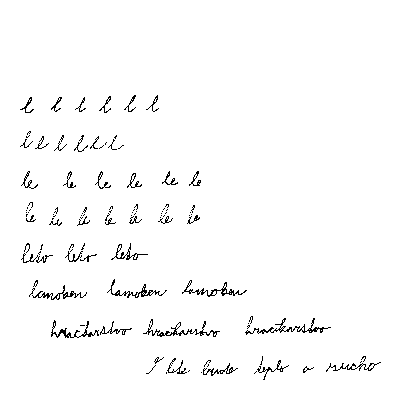 l l l l l l
l l l l l l
le le le le le le
le le le le le le le
leto leto leto
lamoben lamoben lamoben
hračkarstvo hračkarstvo hračkarstvo
V lete bude teplo a sucho